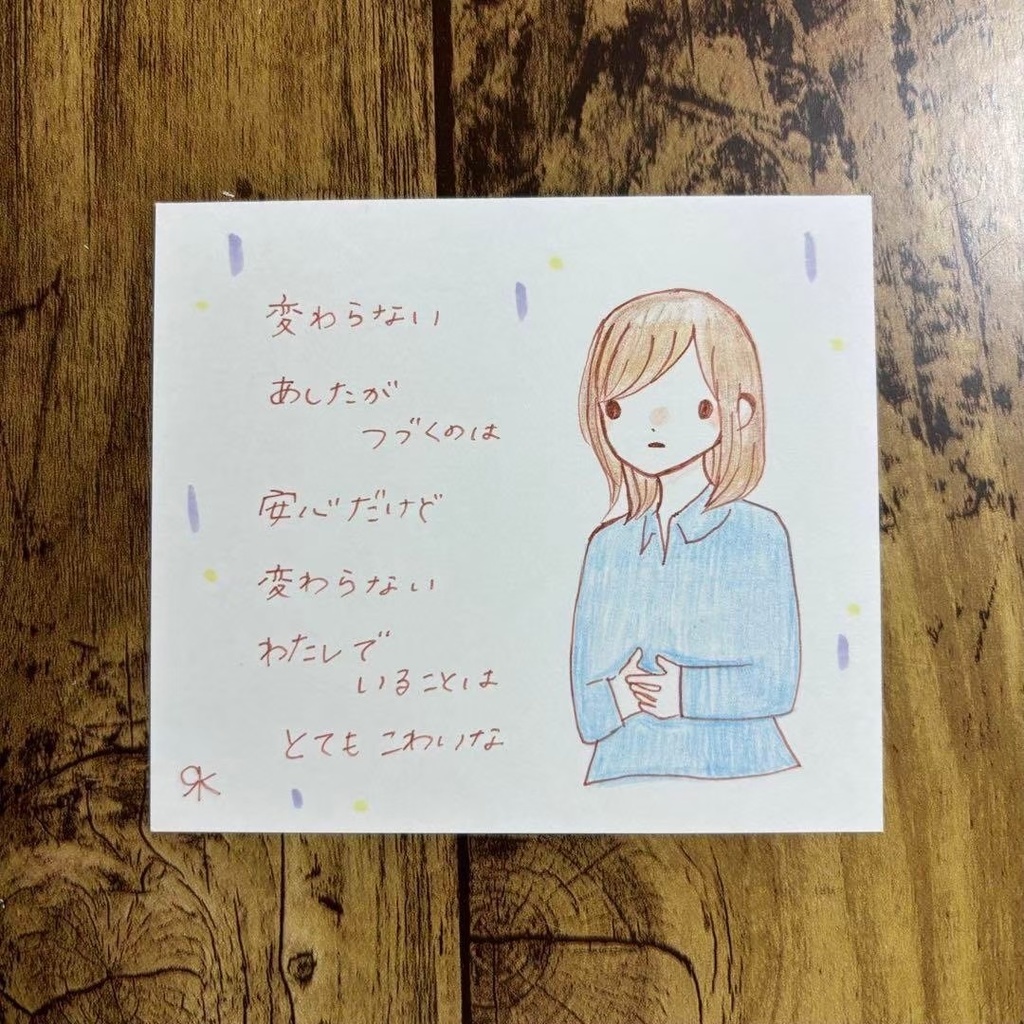 変わらない
あしたが
つづくのは
安心だけど
変わらない
わたしで
いることは
とてもこわいな